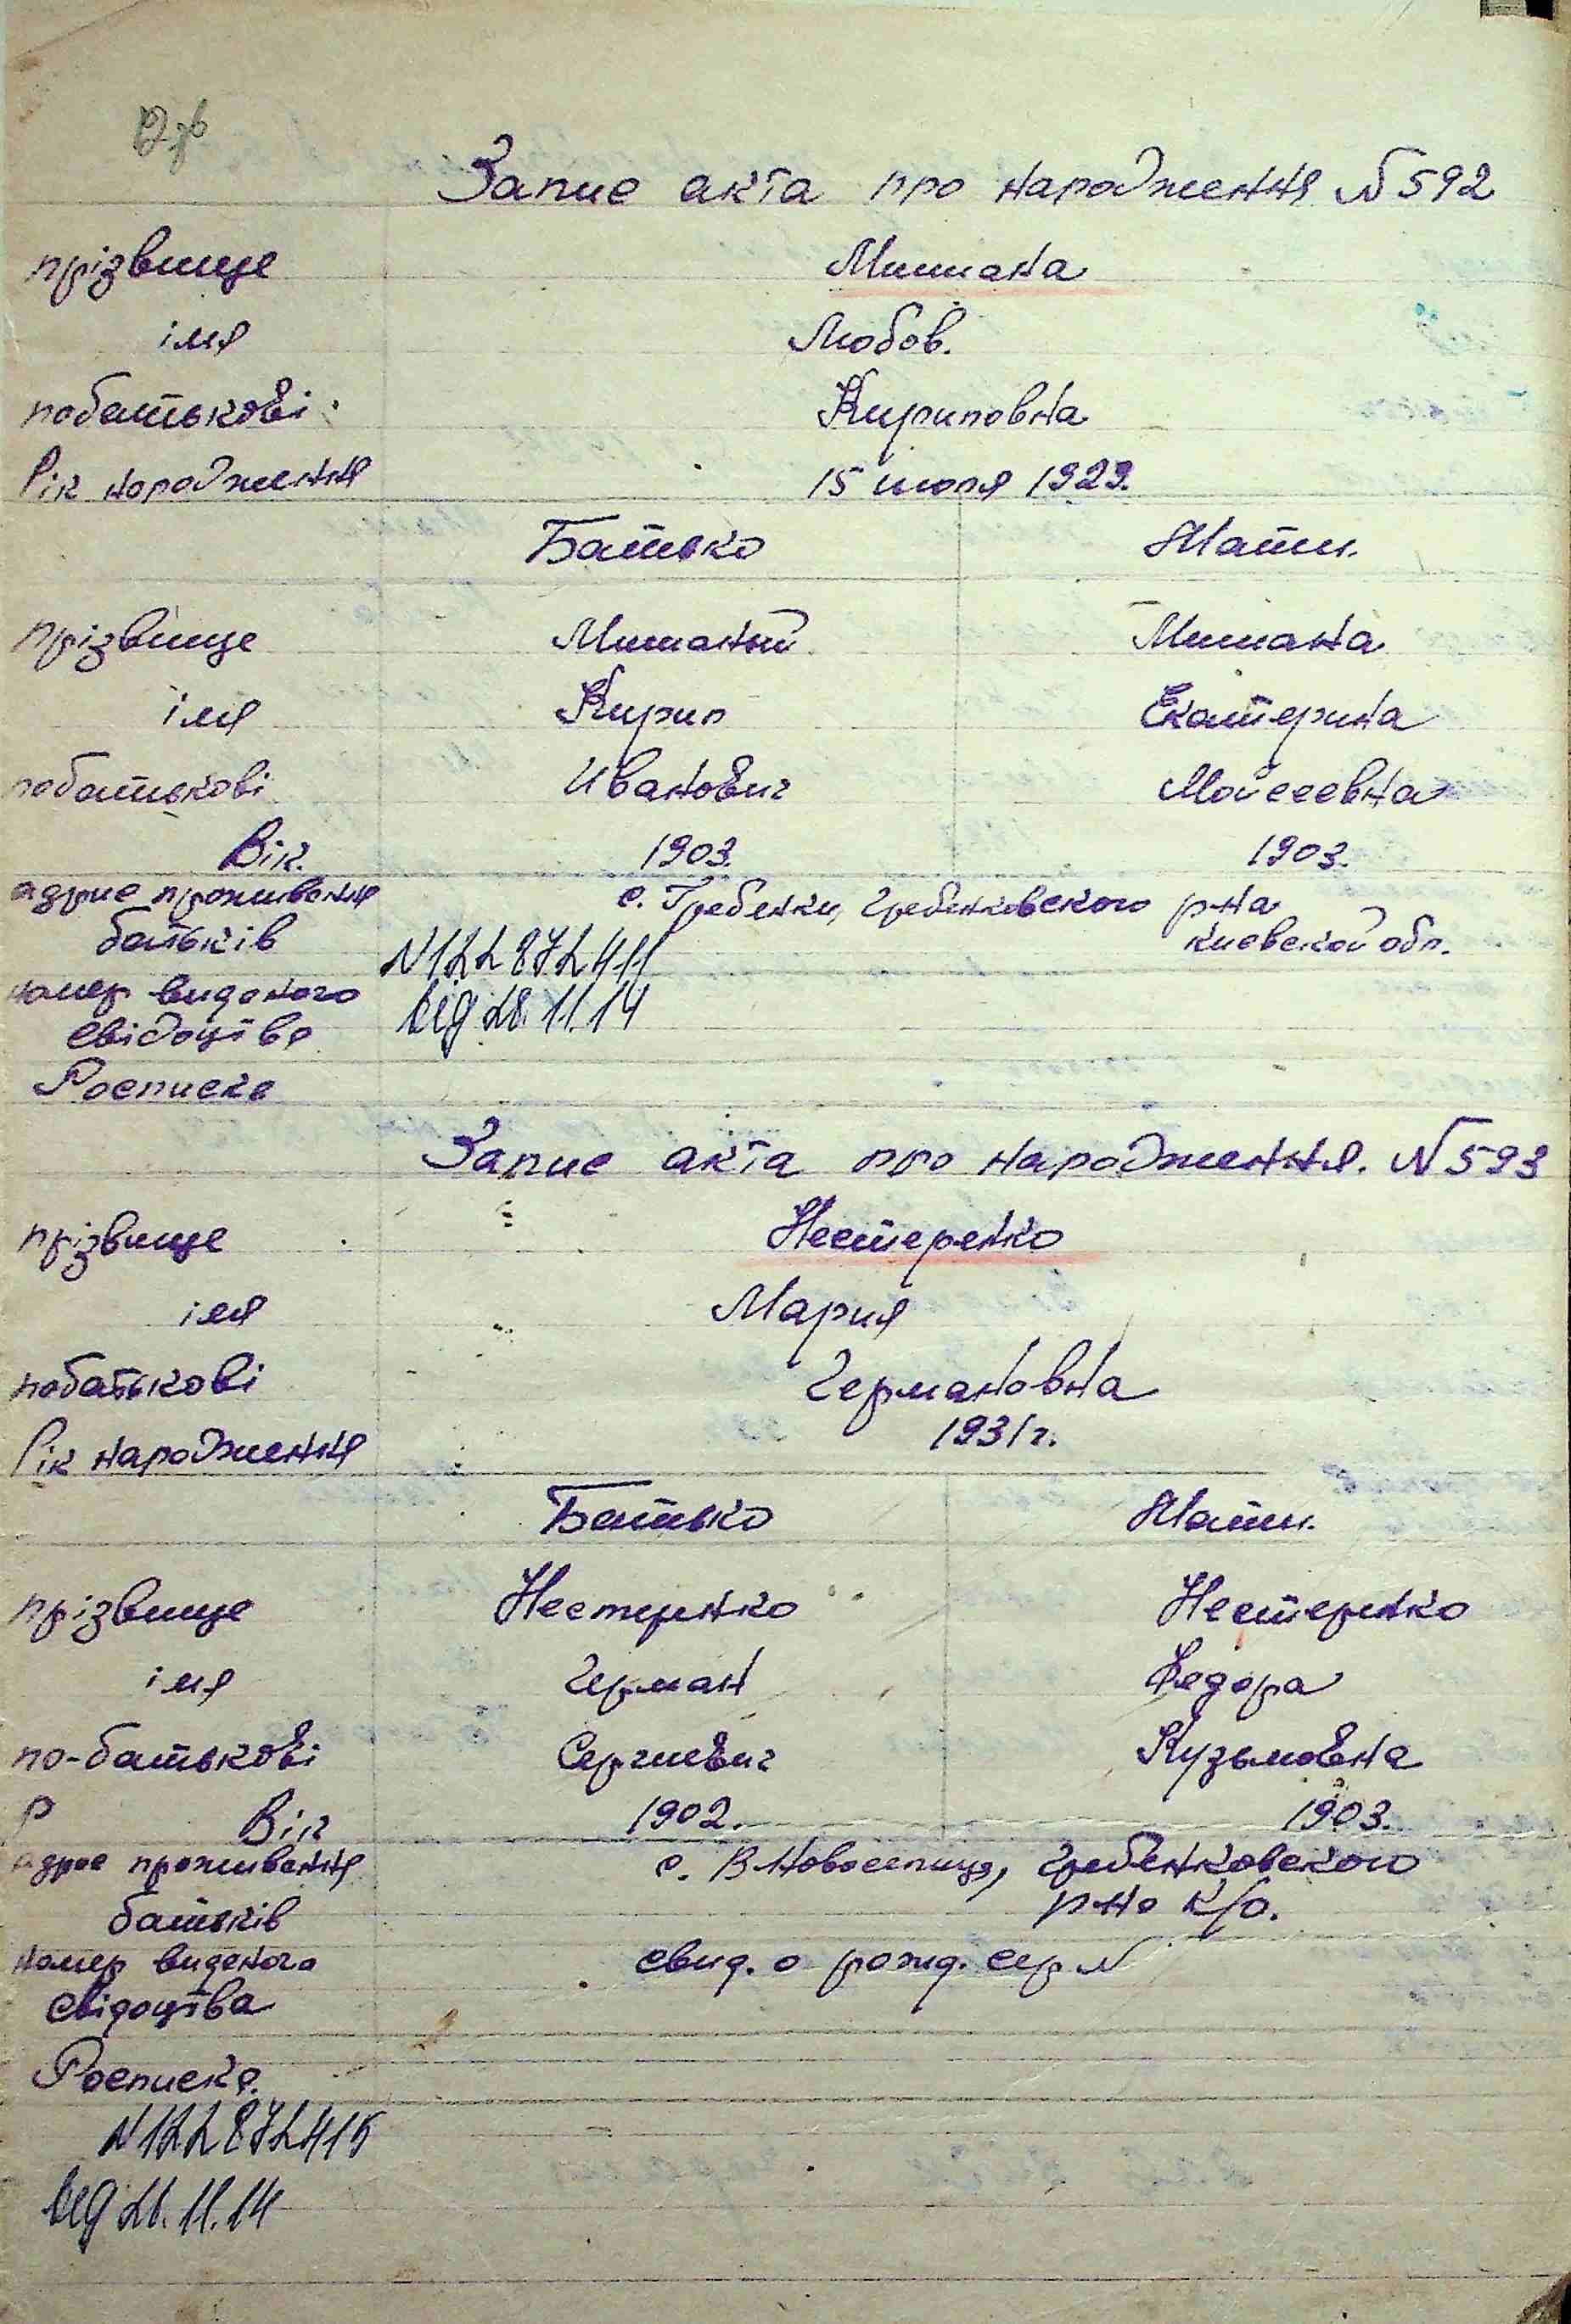 Запис акта про народження N592
прізвище Мишана
імя Любов.
побатькові Кириловна
Рік народження 15 июля 1929.
Батько Мати.
прізвище Мишаный Мишана
імя Кирил Екатерина
побатькові Иванович Мойсеевна
Вік. 1903. 1903.
адрис проживання с. Гребенки, Гребенковского р-на
батьків Киевской обл.
N122872411
номер виданого
від 28.11.14
свідоцтва
Росписка
Запис акта про народження. N593
прізвище Нестеренко
імя Мария
побатькові Германовна
Рік народження 1931г.
Батько Мати.
прізвище Нестеренко Нестеренко
імя Герман Федора
по-батькові Сергиевич Кузьмовна
Р Вік 1902. 1903.
адрес проживання с. В-Новоселица, Гребенковского
батьків р-на К/о.
номер виданого свид. о рожд. сер N
свідоцтва
Росписка.
N122872415
від 28.11.14